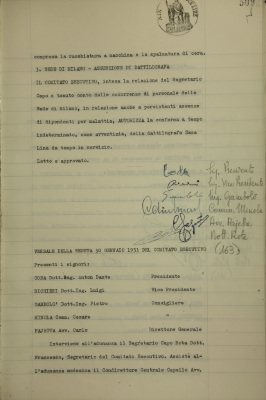 compreso la rucchietura a macchina e la spuntatura di cera.
3. SEDE DI MILANO - ASSUNZIONE DI DATTILOGRAFA
IL COMITATO ESECUTIVO, intesa la relazione del Segretario
Capo e tenuto conto delle occorrenze di personale della
Sede di Milano, in relazione anche a persistenti assenze
di dipendenti per malattia, AUTORIZZA la conferma a tempo
indeterminato, come avventizia, della Dattilografa
Lina da tempo in servizio.
Letto e approvato.
Ing. Presidente
Ing. Vice Presidente
Ing.
Comm. Minola
Avv. Pajetta
Dott. Rota
(163)
VERBALE DELLA SEDUTA 30 GENNAIO 1951 DEL COMITATO ESECUTIVO
Presenti i signori:
CODA Dott.Ing. Anton Dante Presidente
Dott.Ing. Luigi Vice Presidente
Dott.Ing. Pietro Consigliere
MINOLA Comm. Cesare "
PAJETTA Avv. Carlo Direttore Generale
Interviene all'adunanza il Segretario Capo Rota Dott.
Francesco, Segretario del Comitato Esecutivo. Assiste al-
l'adunanza medesima il Condirettore Centrale Capello Avv.